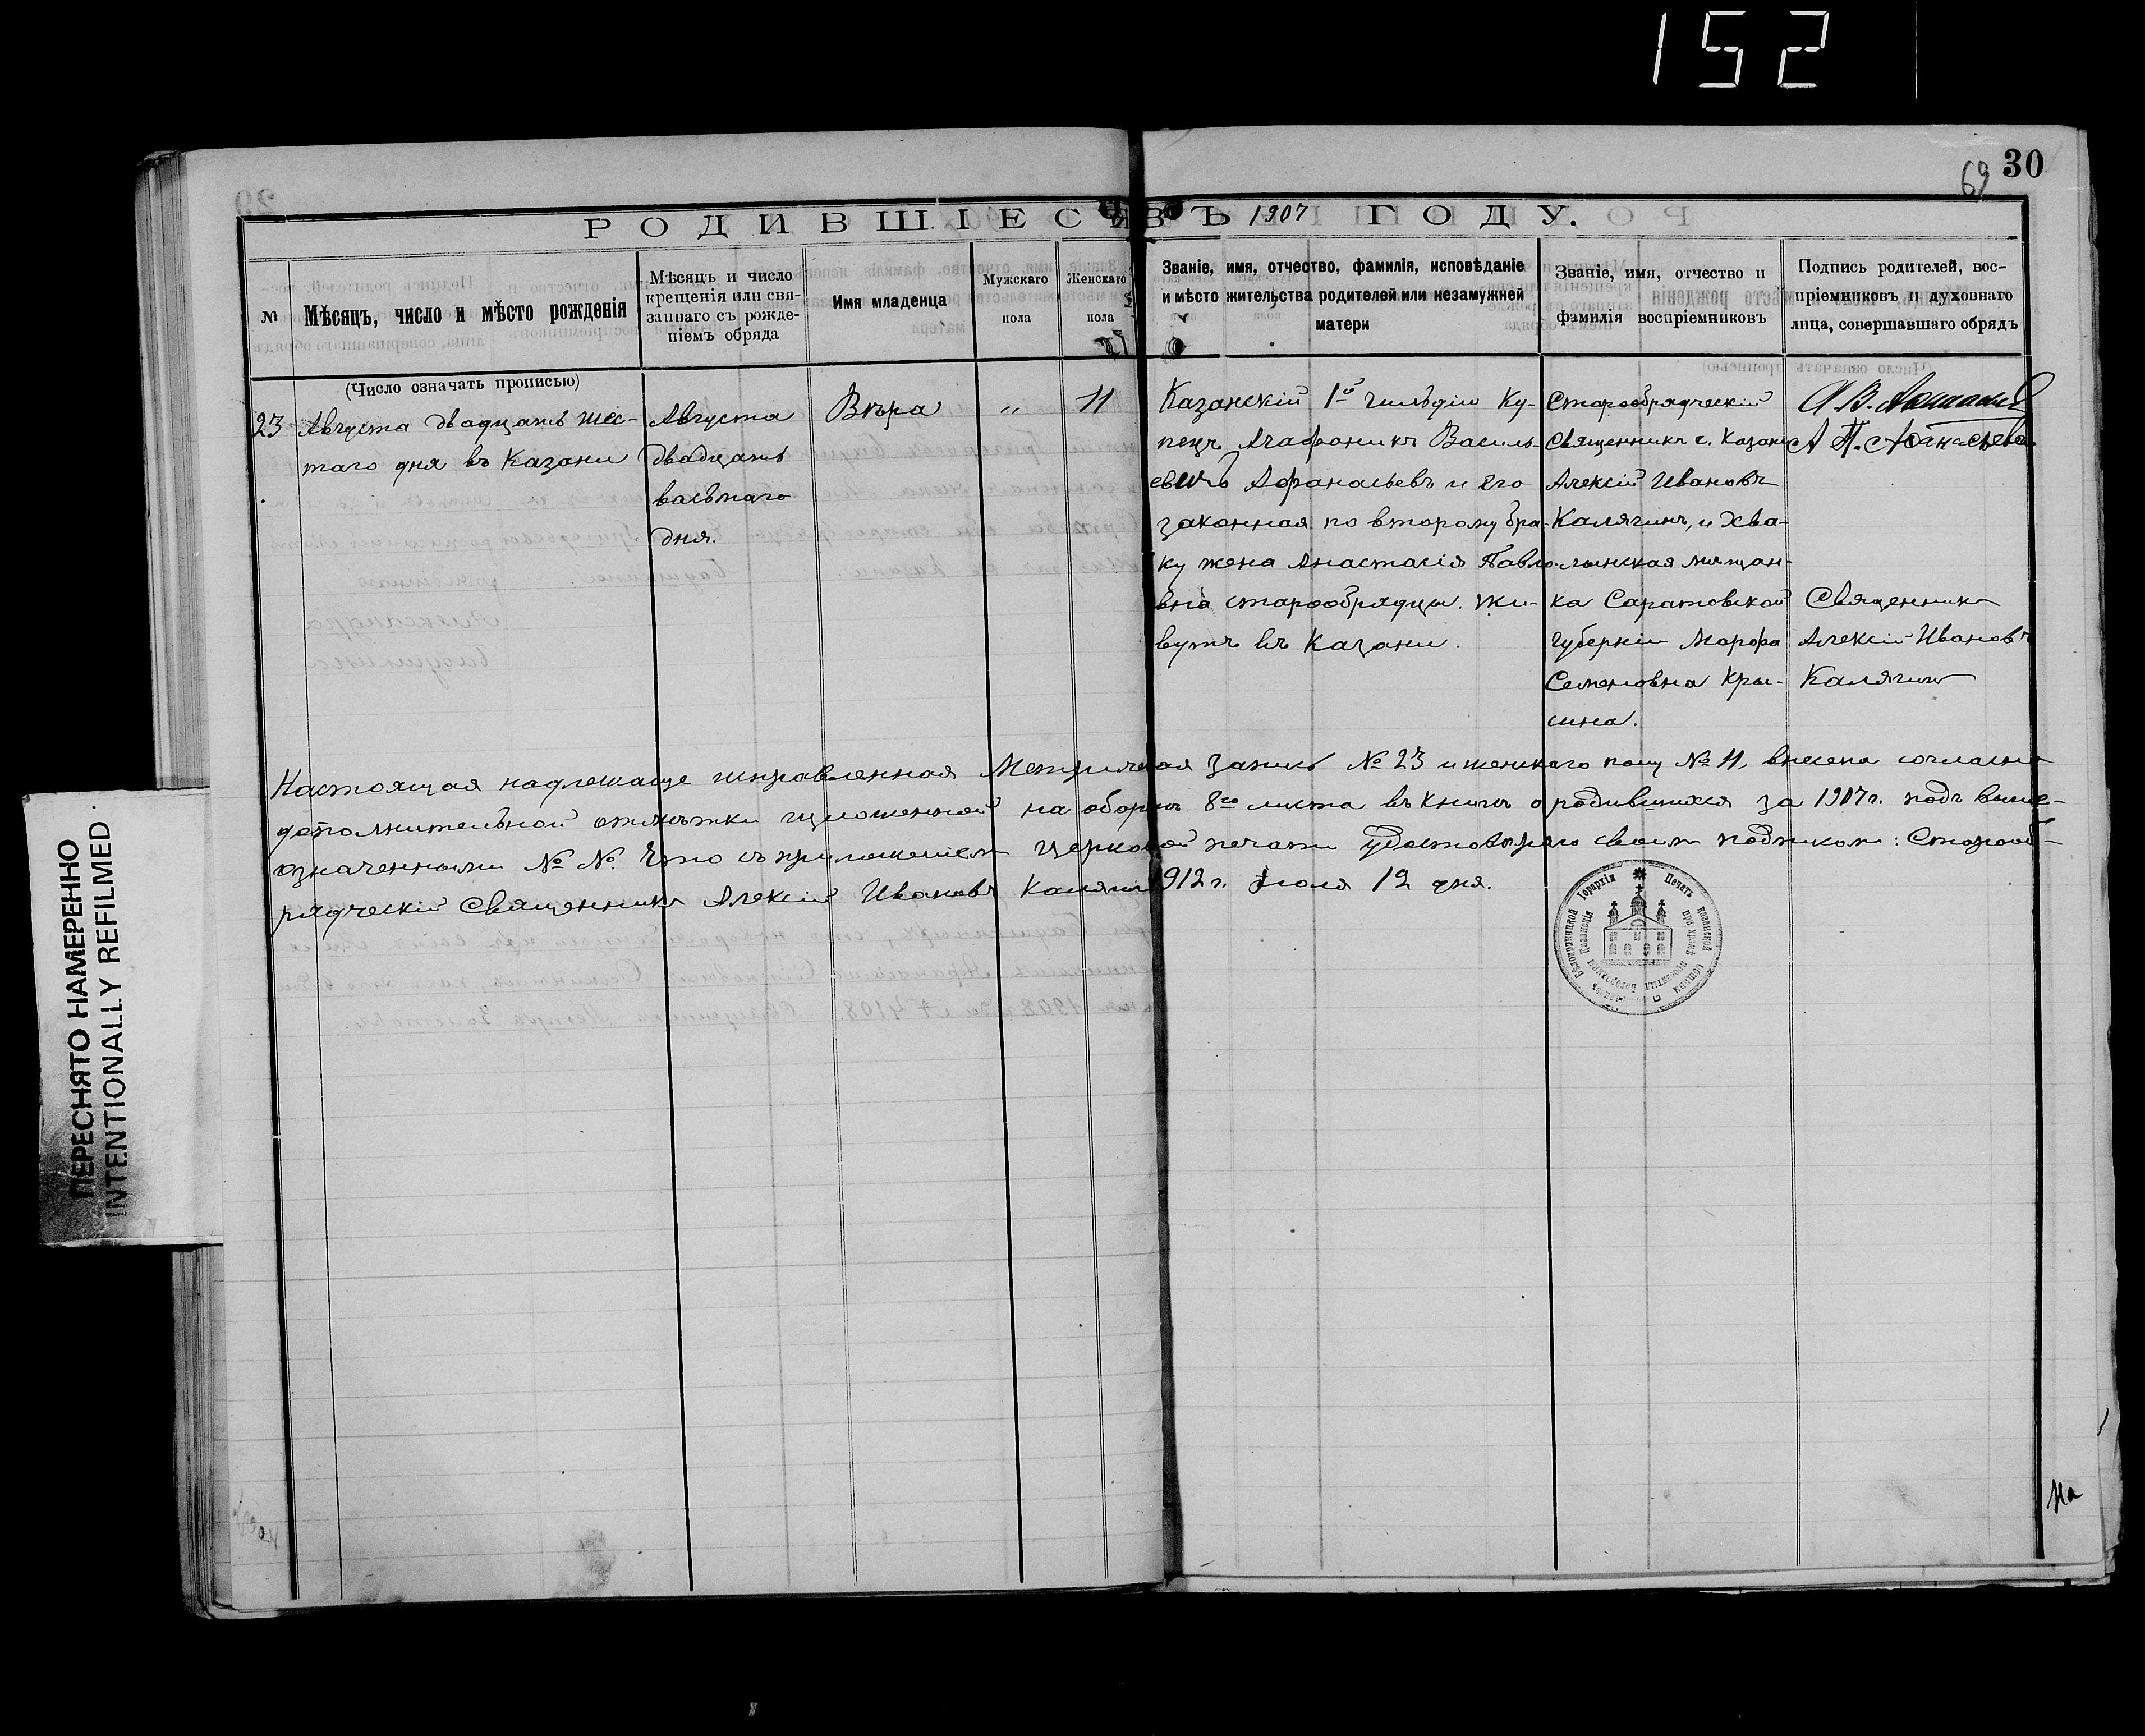 152
30
69
РОДИВШІЕСЯ ВЪ 1907 ГОДУ.
№
Мѣсяцъ, число и мѣсто рожденія
Мѣсяцъ и число
крещенія или свя-
заннаго съ рожде-
ніемъ обряда
Имя младенца
Мужскаго
пола
Женскаго
пола
Званіе, имя, отчество, фамилія, исповѣданіе
и мѣсто жительства родителей или незамужней
матери
Званіе, имя, отчество и
фамилія воспріемниковъ
Подпись родителей, вос-
пріемниковъ и духовнаго
лица, совершавшаго обрядъ
(Число означать прописью)
23
Августа двадцать шес-
таго дня въ Казани
Августа
двадцать
васьмаго
дня.
Вѣра
"
11
Казанскій 1й гильдіи Ку-
пецъ Агафоникъ Василь-
евичъ Афанасьевъ и его
законная по второму бра-
ку жена Анастасія Павло-
вна старообрядцы. Жи-
вутъ въ Казани.
Старообрядческій
Священникъ г. Казани
Алексій Ивановъ
Калягинъ, и Хва-
лынская мѣщан-
ка Саратовской
Губерніи Марфа
Семеновна Кры-
сина.
А. В. Афанасьев
А П. Афанасьева
Священникъ
Алексій Ивановъ
Калягинъ
Настоящая надлежаще исправленная Метрическая запись № 23 и женскаго полу № 11, внесена согласно
дополнительной отмѣтки изложенной на оборотѣ 8го листа въ книгѣ о родившихся за 1907 г. подъ выше-
означенными №№. Что съ приложеніемъ церковной печати удостовѣряю своимъ подписом: Старооб-
рядческій Священникъ Алексій Ивановъ Калягинъ 1912 г. Іюля 12 дня.
Печать Казанской
Бѣлокриницкой Іерархіи
при храмѣ
На
ПЕРЕСНЯТО НАМЕРЕННО
INTENTIONALLY REFILMED